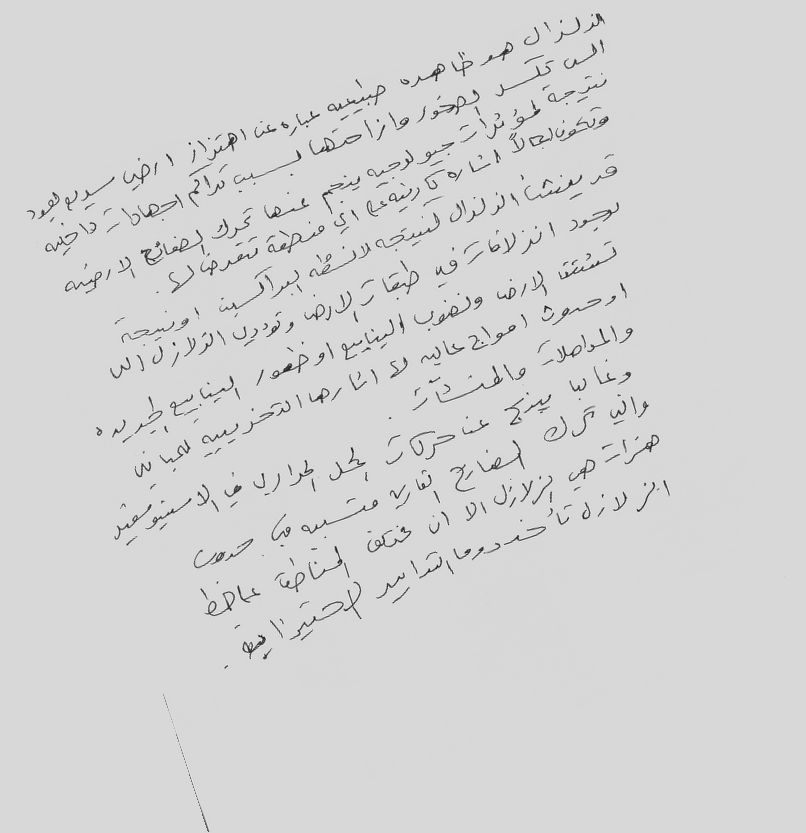 الزلزال هو ظاهره طبيعيه عباره عن اهتزاز ارضي سريع يعود
الى تكسر الصخور وازاحتها بسبب تراكم اجهادات داخليه
نتيجة لمؤثرات جيولوجيه ينجم عنها تحرك الصفائح الارضيه
وتكون اثاره كارثيه على اي منطقة تتعرض لها.
قد ينشأ الزلزال كنتيجه لانشطه البراكين او نتيجة
لوجود انزلاقات في طبقات الارض وتودي الزلازل الى
تشقق الارض ونضوب الينابيع او ظهور الينابيع الجديده
او حدوث امواج عاليه اثارها التخريبيه للمباني
والمواصلات والمنشآت.
وغالبا ينتج عن حركات الحمل الحراري في
والتي تحرك الصفائح القاريه متسببه في حدوث
هزات هي الزلازل الا ان مختلف المناطق على خط
الزلازل تأخذ دوما التدابير الاحتيرازية.